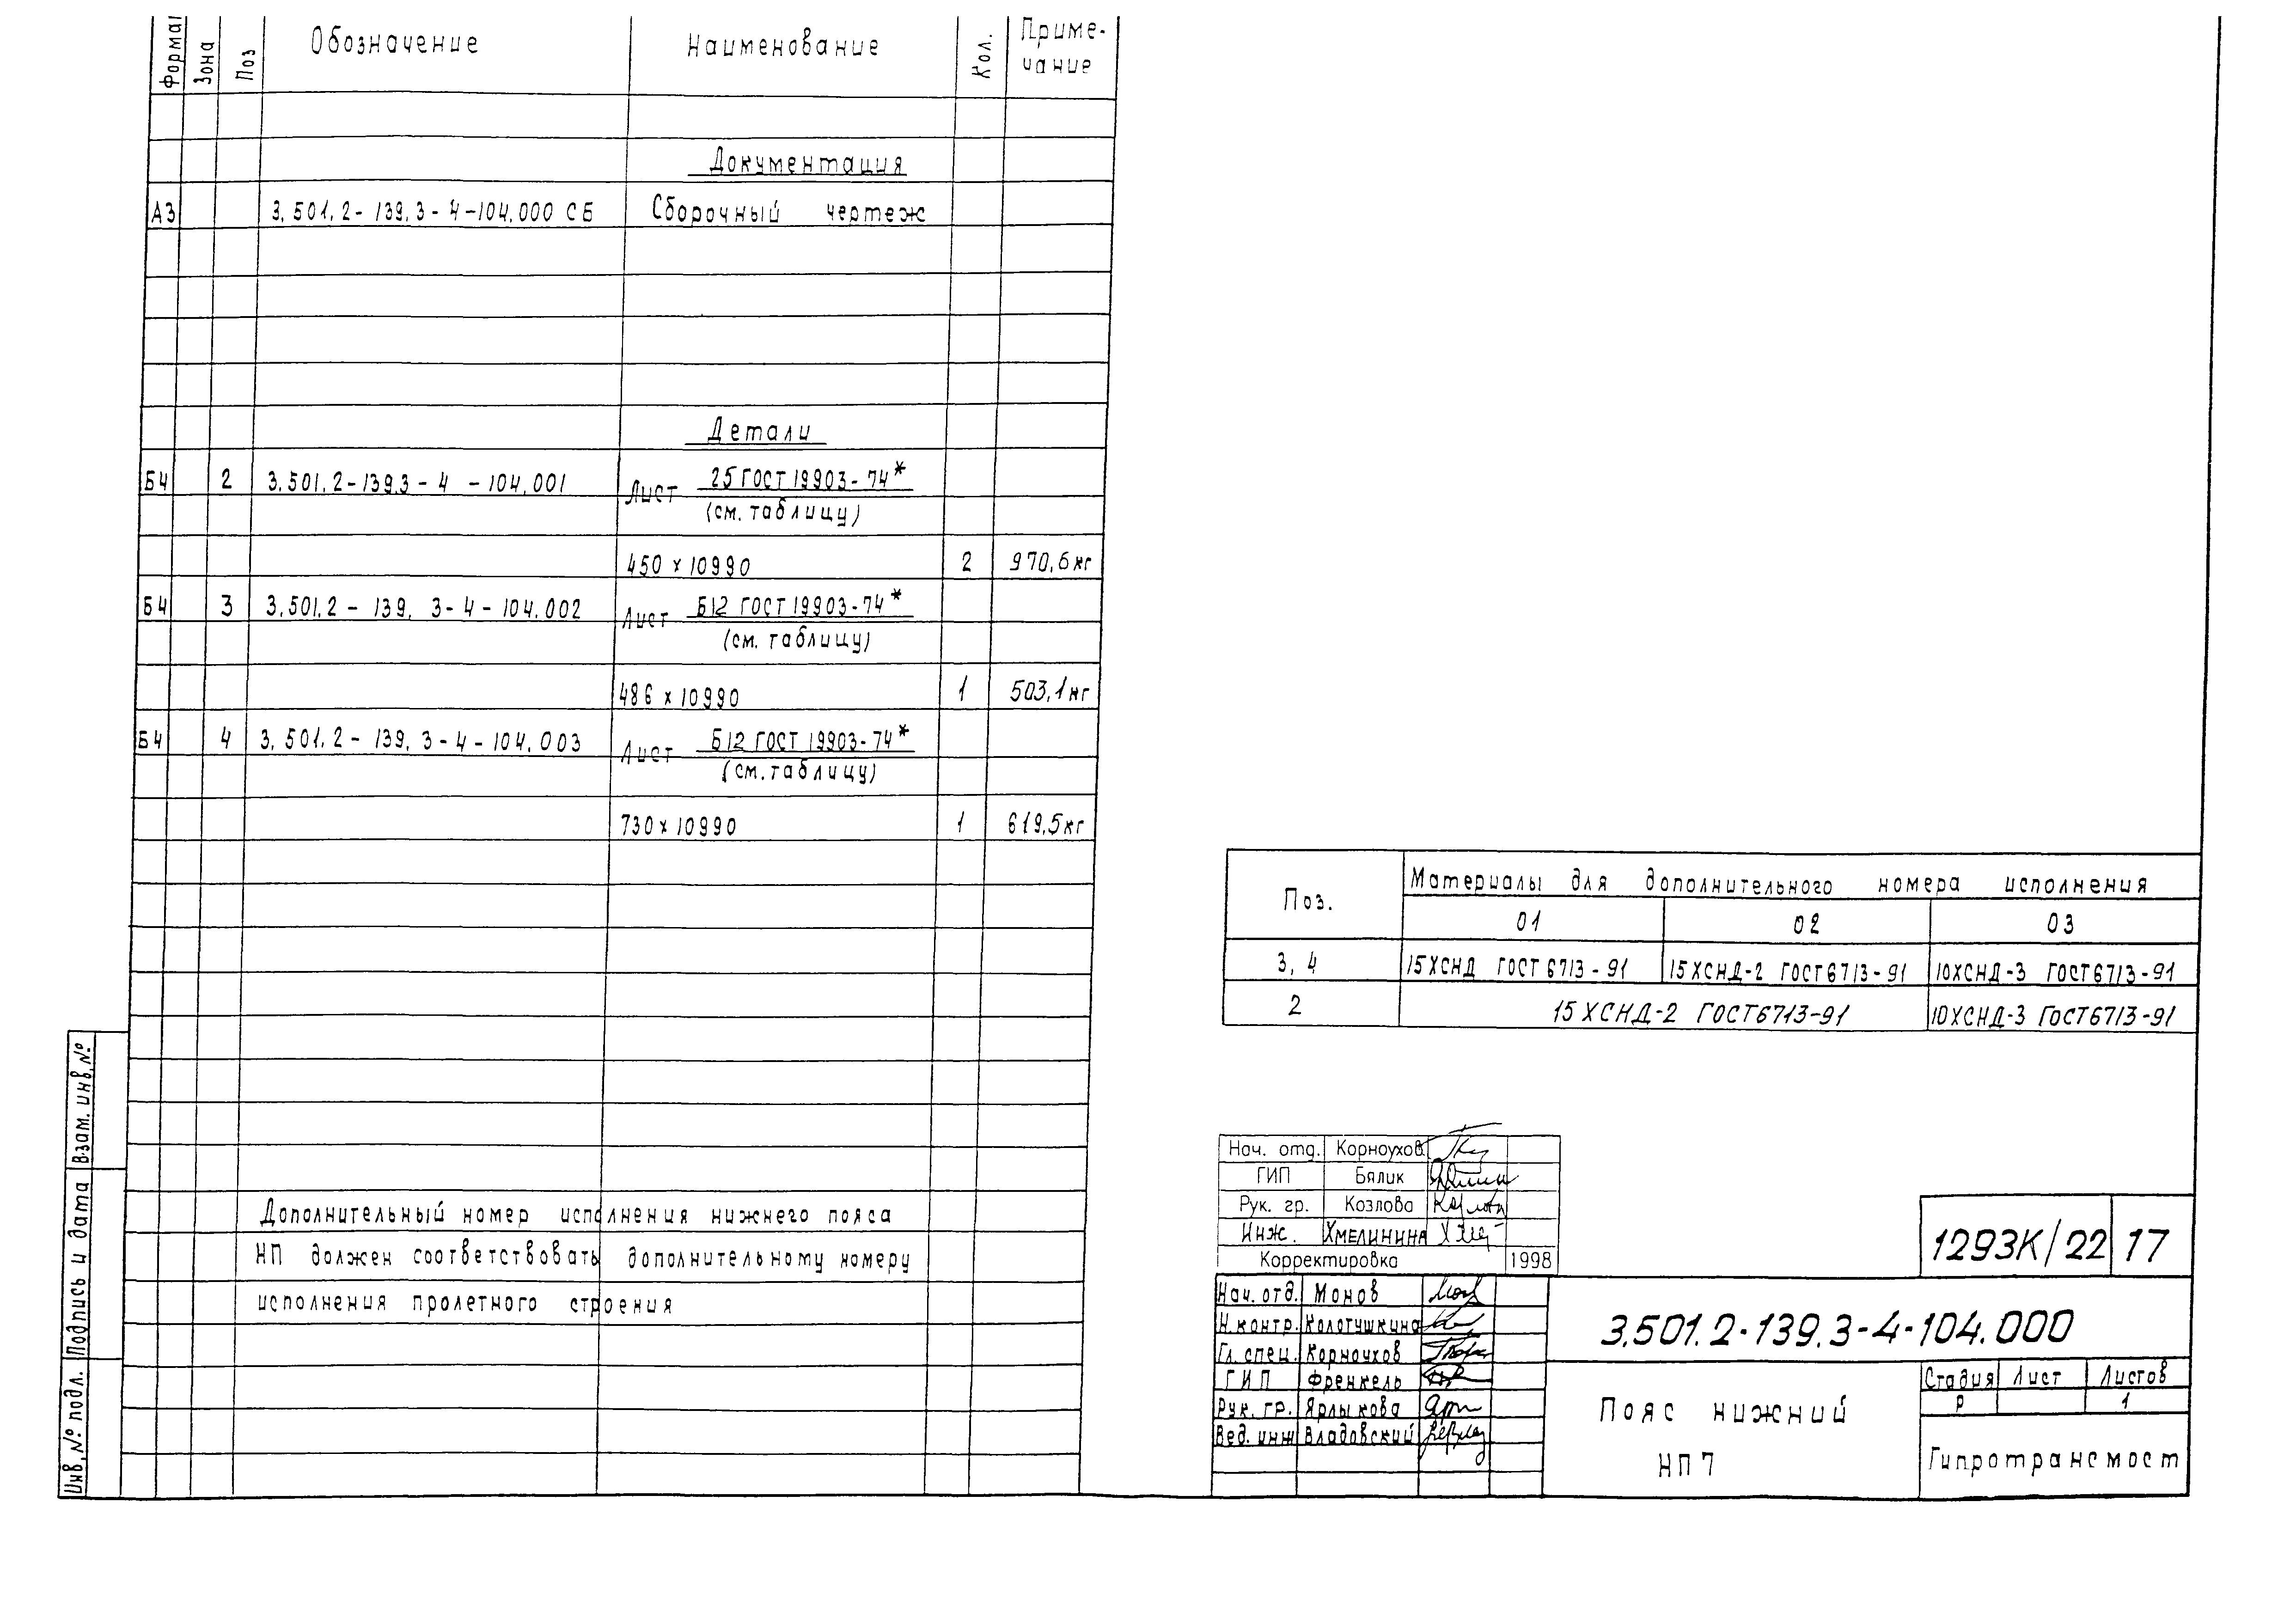 Форма Зона Поз Обозначение Наименование Кол. Приме-
чание
Документация
А3 3.501.2-139.3-4-104.000 СБ Сборочный чертеж
Детали
Б4 2 3.501.2-139.3-4-104.001 Лист 25 ГОСТ 19903-74*
(см. таблицу)
450 х 10990 2 970,6 кг
Б4 3 3.501.2-139.3-4-104.002 Лист Б12 ГОСТ 19903-74*
(см. таблицу)
486 х 10990 1 503,1 кг
Б4 4 3.501.2-139.3-4-104.003 Лист Б12 ГОСТ 19903-74*
(см. таблицу)
730 х 10990 1 619,5 кг
Дополнительный номер исполнения нижнего пояса
НП должен соответствовать дополнительному номеру
исполнения пролетного строения
Взам. инв.№
Подпись и дата
Инв.№ подл.
Поз. Материалы для дополнительного номера исполнения
01 02 03
3, 4 15ХСНД ГОСТ 6713-91 15ХСНД-2 ГОСТ 6713-91 10ХСНД-3 ГОСТ 6713-91
2 15ХСНД-2 ГОСТ 6713-91 10ХСНД-3 ГОСТ 6713-91
Нач. отд. Корноухов
ГИП Бялик
Рук. гр. Козлова
Инж. Хмелинина
Корректировка 1998
1293К/22 17
Нач. отд. Монов
Н.контр. Колотушкина
Гл. спец. Корноухов
ГИП Френкель
Рук. гр. Ярлыкова
Вед. инж Владовский
3.501.2-139.3-4-104.000
Пояс нижний
НП 7
Стадия Лист Листов
Р 1
Гипротрансмост